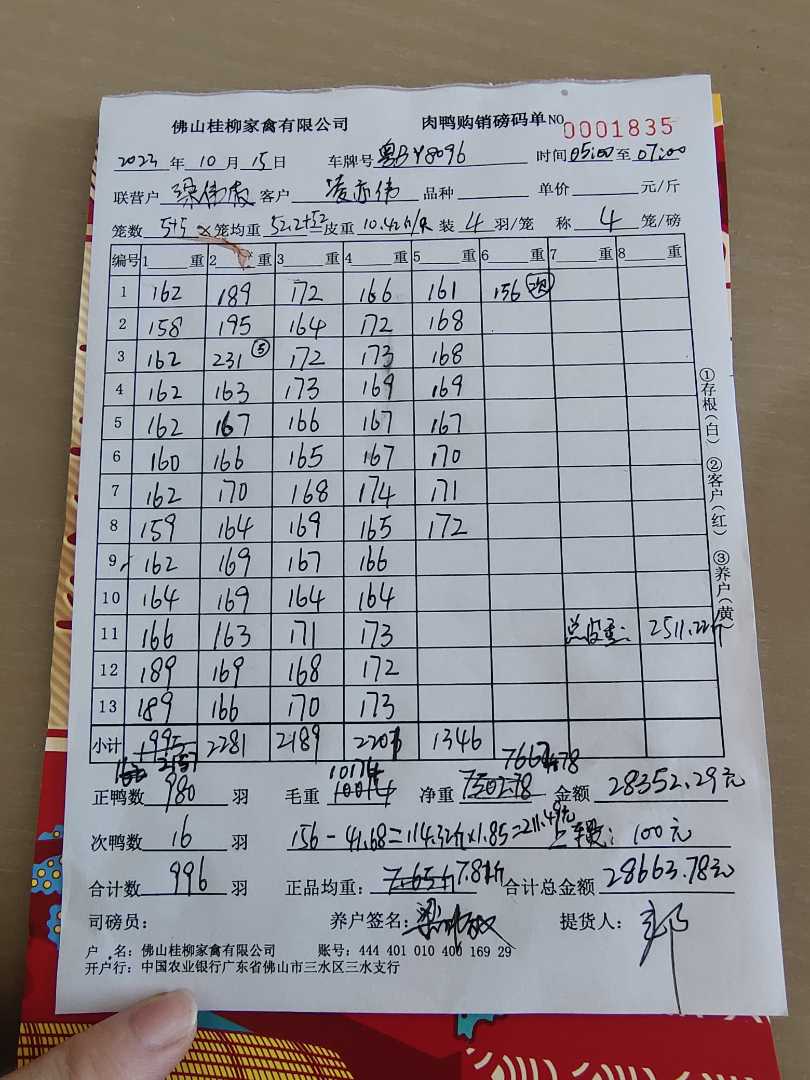 佛山桂柳家禽有限公司 肉鸭购销磅码单 NO 0001835
2023 年 10 月 15 日 车牌号 粤BY8096 时间 05:00 至 07:00
联营户 梁伟放 客户 凌亦伟 品种 单价 元/斤
笼数 5+5 笼均重 52.2+52 皮重 10.42斤/只 装 4 羽/笼 称 4 笼/磅
编号 1 重 2 重 3 重 4 重 5 重 6 重 7 重 8 重
1 162 189 172 166 161 156 次
2 158 195 164 172 168
3 162 231 ⑤ 172 173 168
4 162 163 173 169 169
5 162 167 166 167 167
6 160 166 165 167 170
7 162 170 168 174 171
8 159 164 169 165 172
9 162 169 167 166
10 164 169 164 164
11 166 163 171 173 总皮重: 2511.22斤
12 189 169 168 172
13 189 166 170 173
小计 2157 2281 2189 2201 1346
正鸭数 980 羽 毛重 10174 净重 7662.78 金额 28352.29元
次鸭数 16 羽 156-41.68=114.32斤×1.85=211.49元 上车费: 100元
合计数 996 羽 正品均重: 7.81斤 合计总金额 28663.78元
司磅员: 养户签名: 提货人:
户 名: 佛山桂柳家禽有限公司 账号: 444 401 010 400 169 29
开户行: 中国农业银行广东省佛山市三水区三水支行
①存根(白) ②客户(红) ③养户(黄)